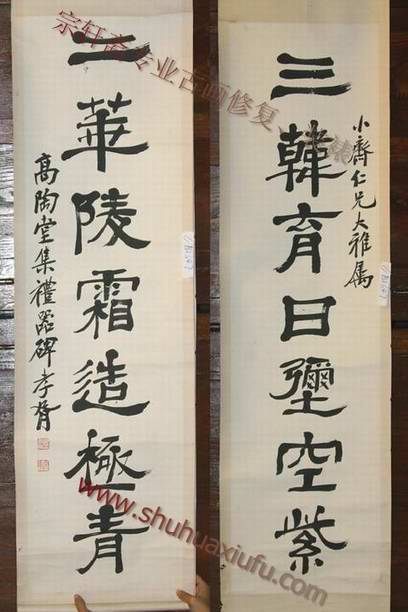 小齊仁兄大雅属
三韓育日彌空紫
二華陵霜造極青
高陶堂集禮器碑孝胥
宗轩斋专业古画修复、装裱
www.shuhuaxiufu.com